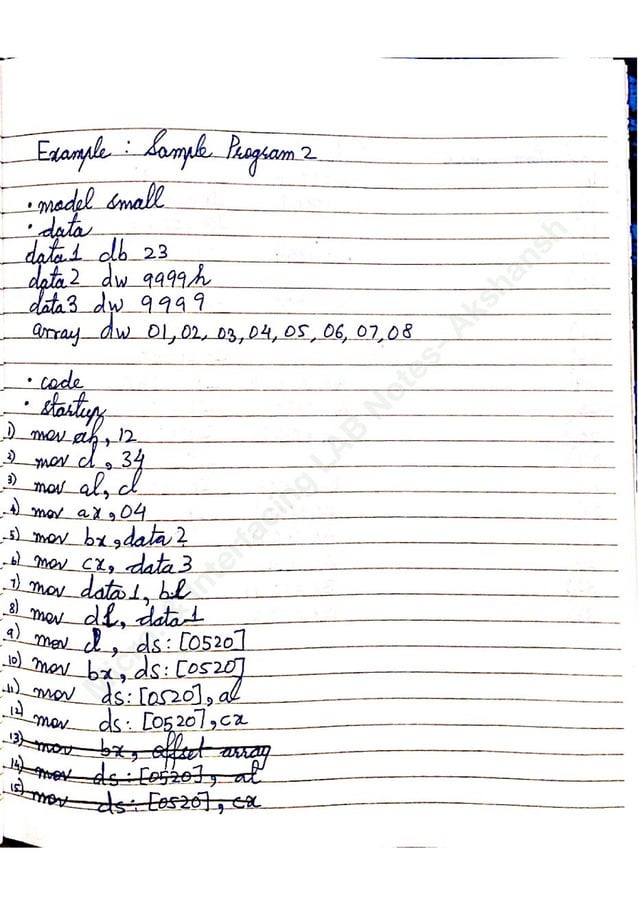 Example : Sample Program 2
.model small
.data
data1 db 23
data2 dw 9999h
data3 dw 9999
array dw 01,02,03,04,05,06,07,08
.code
.startup
1) mov ah, 12
2) mov cl, 34
3) mov al, cl
4) mov ax, 04
5) mov bx, data2
6) mov cx, data3
7) mov data1, bl
8) mov dl, data1
9) mov cl, ds:[0520]
10) mov bx, ds:[0520]
11) mov ds:[0520], al
12) mov ds:[0520], cx
13) mov bx, offset array
14) mov ds:[0520], al
15) mov ds:[0520], cx
Interfacing LAB Notes- Akshansh